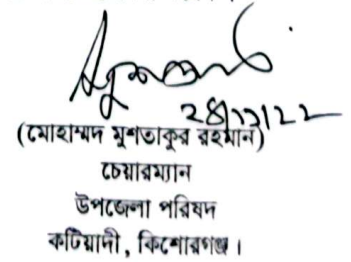 ২৪/১১/২২
(মোহাম্মদ মুশতাকুর রহমান)
চেয়ারম্যান
উপজেলা পরিষদ
কটিয়াদী, কিশোরগঞ্জ।